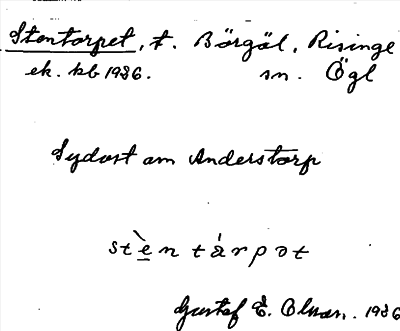 Stentorpet, t. Börgöl, Risinge
ek. kb 1936. sn. Ögl
Sydost am Anderstorp
stè̱n tárpət
Gustaf E. Olsson. 1936